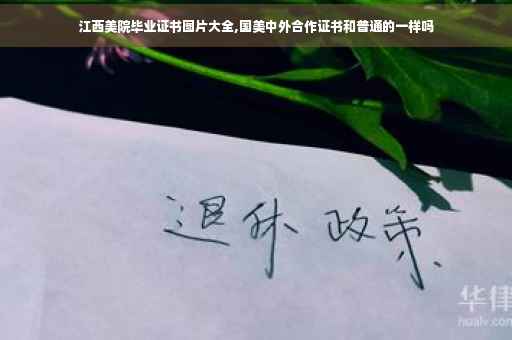 江西美院毕业证书图片大全,国美中外合作证书和普通的一样吗
退休 政策
华律
hualv.com